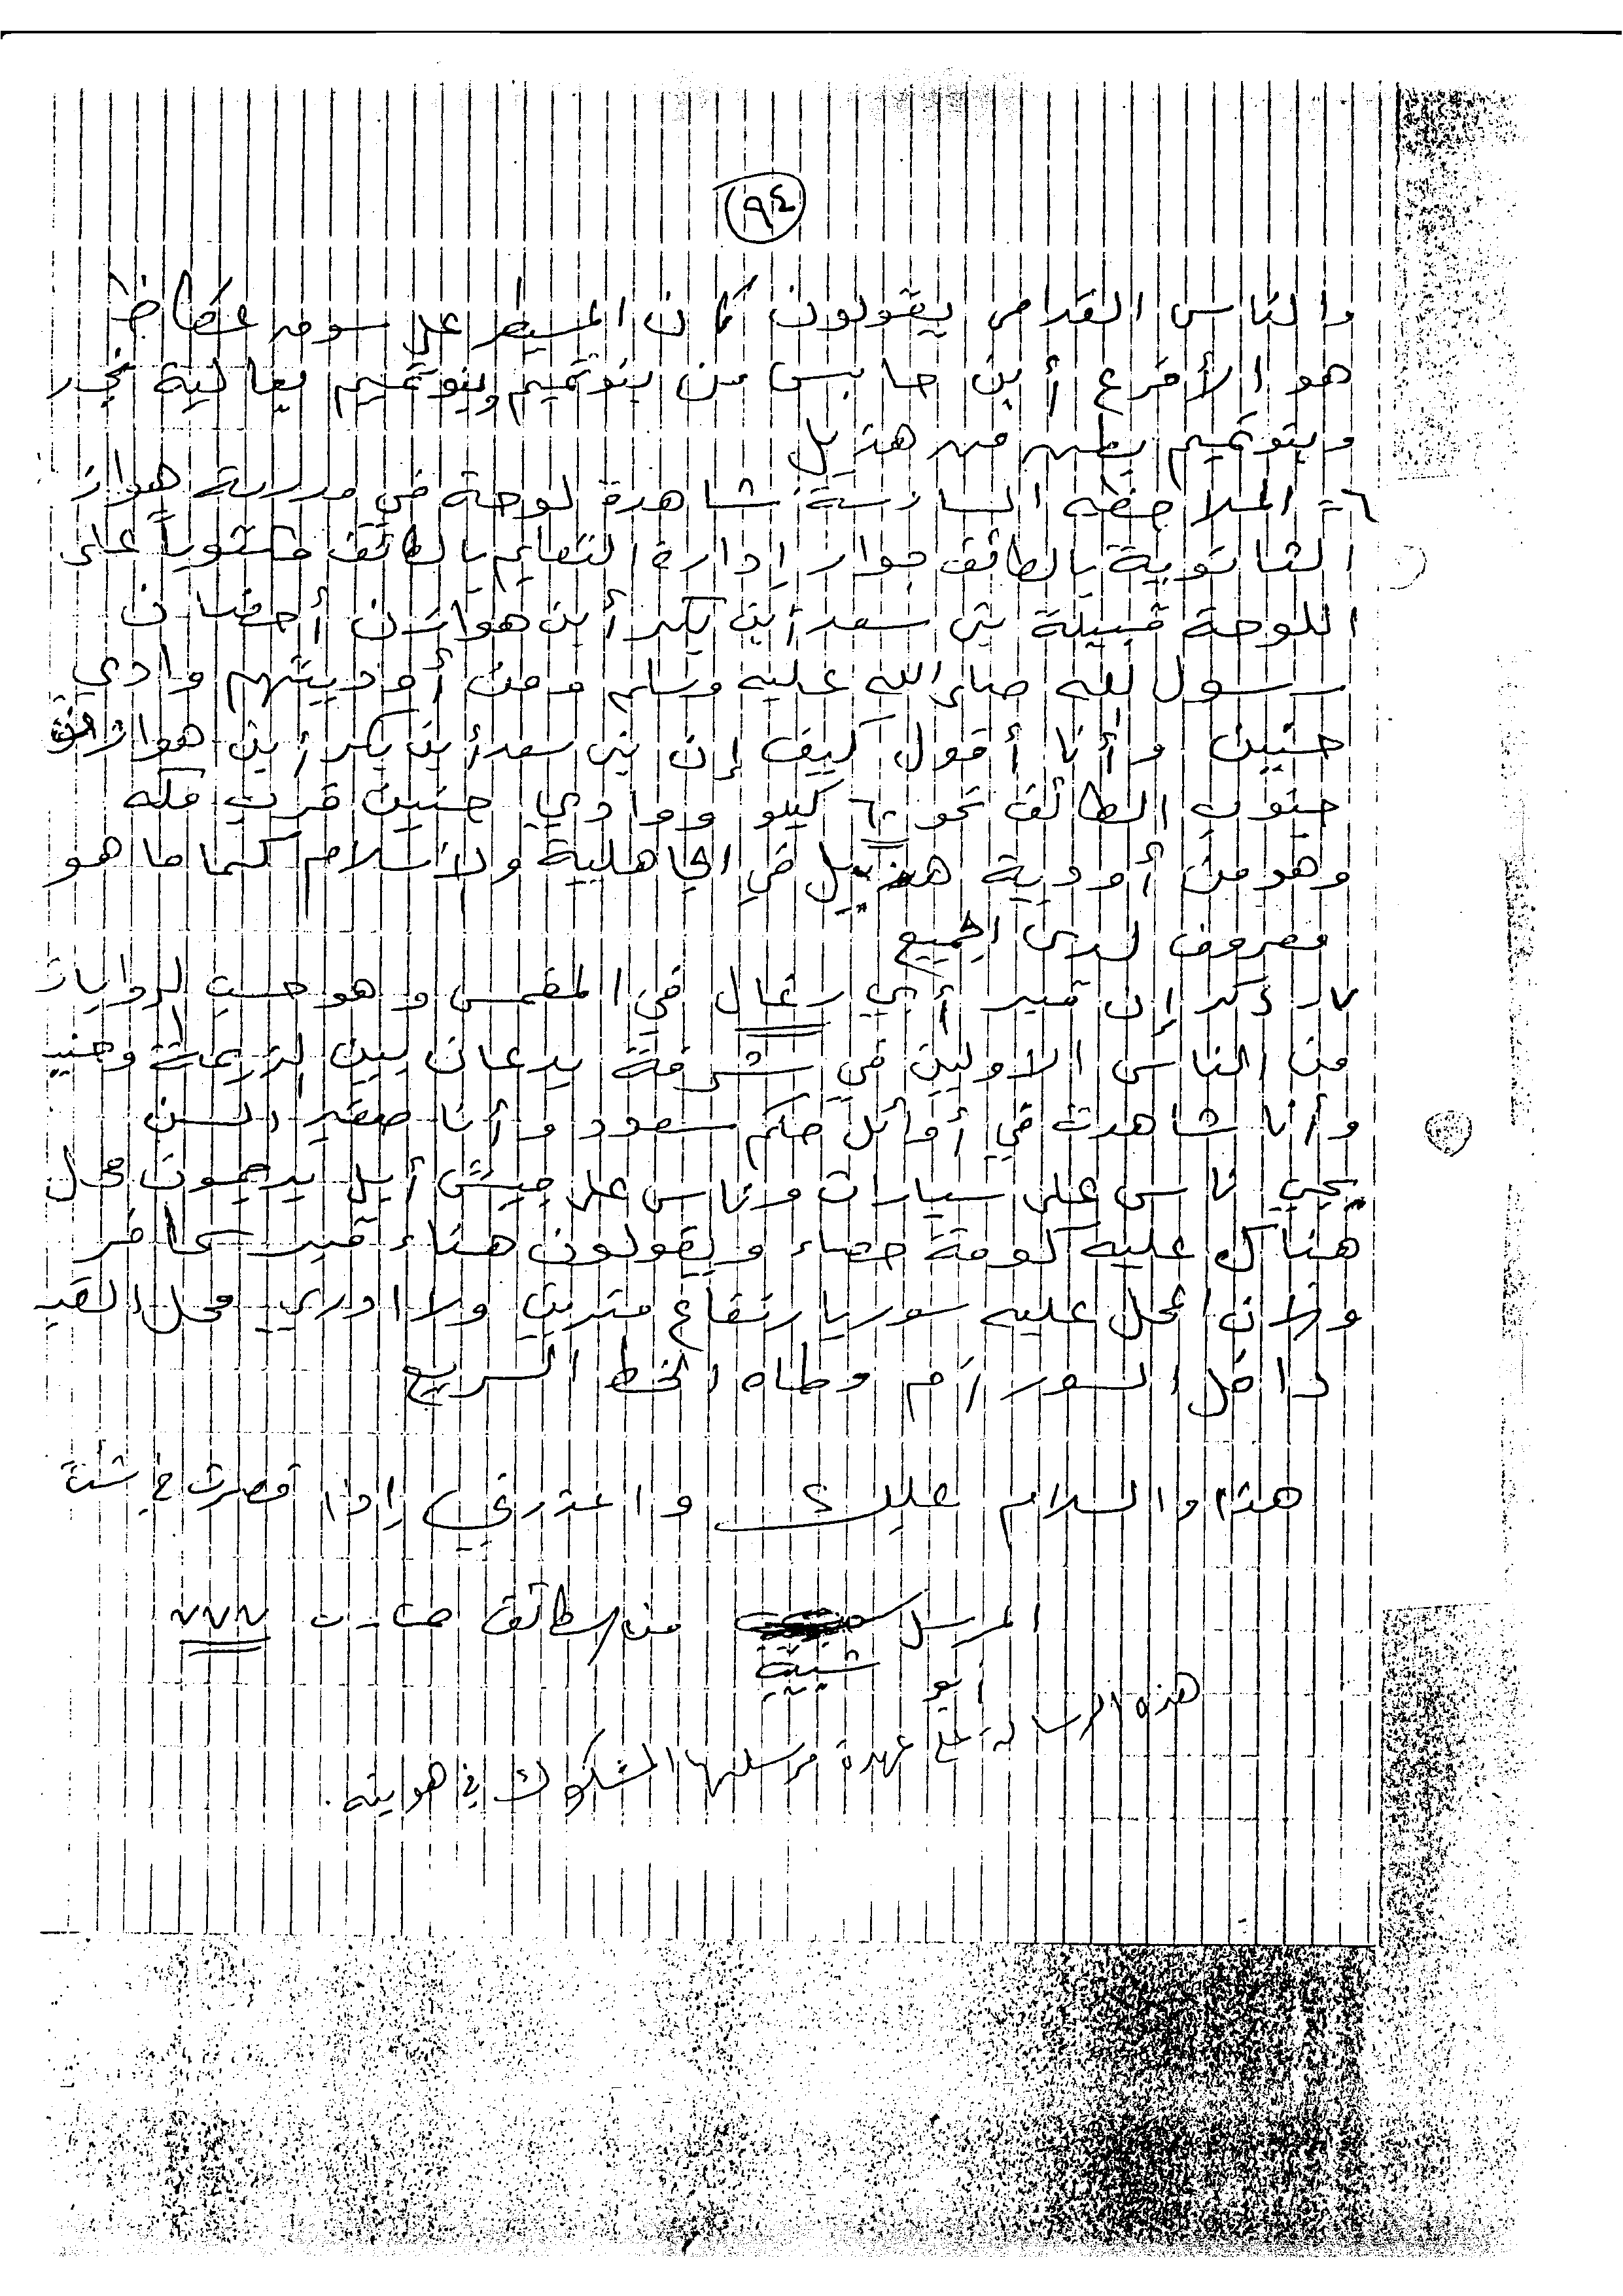 ٩٤
والناس القدامى يقولون كان المسيطر على سوق عكاظ
هو الأقرع أبن حابس من بنو تميم وبنو تميم بعالية نجد
وبنو تميم بطن من هذيل
٦= الملاحظه السادسة: شاهدة لوحة في مدرسة هوازن
الثانوية بالطائف جوار إدارة التعليم بالطائف مكتوباً على
اللوحة قبيلة بني سعد أبن بكر أبن هوازن أحضان
رسول لله صلى الله عليه وسلم ومن أوديتهم وادي
حنين وأنا أقول كيف إن بني سعد أبن بكر أبن هوازن
جنوب الطائف نحو ٦٠ كيلو ووادي حنين قرب مكه
وهو من أودية هذيل في الجاهلية والاسلام كما ما هو
معروف لدى الجميع
٧ـ ذكر إن قبر أبي رغال في المغمس وهو حسب الروايات
من الناس الاولين في شرفة يدعان بين الزيمة وحنين
وأنا شاهدت في أوائل حكم سعود وأنا صغير السن
يجي ناس على سيارات وناس على جيش أبل يرجمون محل
هناك عليه كومة حصاء ويقولون هناء قبر كافر
والان المحل عليه سور بارتفاع مترين ولا ادري محل القبر
داخل السور أم وطاه الخط السريع
هذا والسلام عليك واعذرني إذا قصرت في شئ
المرسل من الطائف ص ـ ب ٧٧٧
أبو شيبة
هذه الرسالة على عهدة مرسلها المشكوك في هويته.